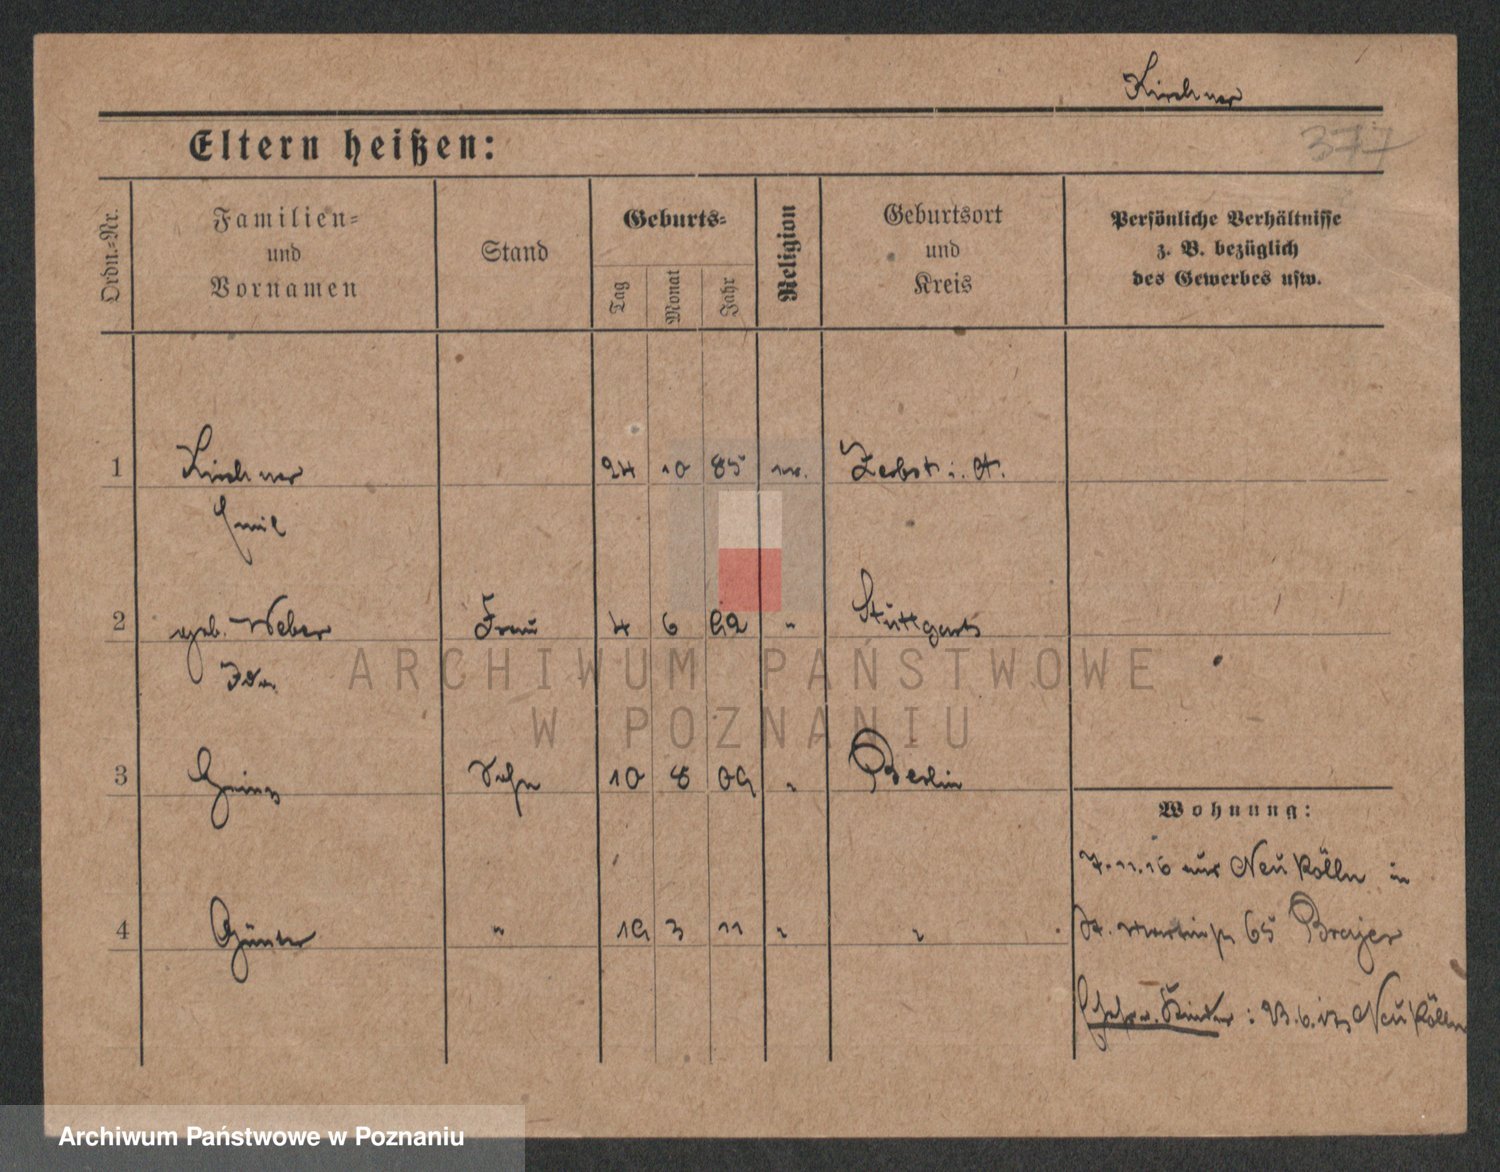 Kirchner
377
Eltern heißen:
Ordn.-Nr.
Familien-
und
Vornamen
Stand
Geburts-
Tag
Monat
Jahr
Religion
Geburtsort
und
Kreis
Persönliche Verhältnisse
z. B. bezüglich
des Gewerbes usw.
1 Kirchner 24 10 85 ev. Zerbst i. A.
Emil
2 geb. Weber Frau 4 6 82 " Stuttgart
Ida
3 Heinz Sohn 10 8 09 " Berlin
Wohnung:
7.11.16 aus Neukölln in
4 Günter " 19 3 11 " "
St. Martinstr 65 Brajer
Ehefr u. Kinder: 23.6.17 Neukölln
ARCHIWUM PAŃSTWOWE
W POZNANIU
Archiwum Państwowe w Poznaniu